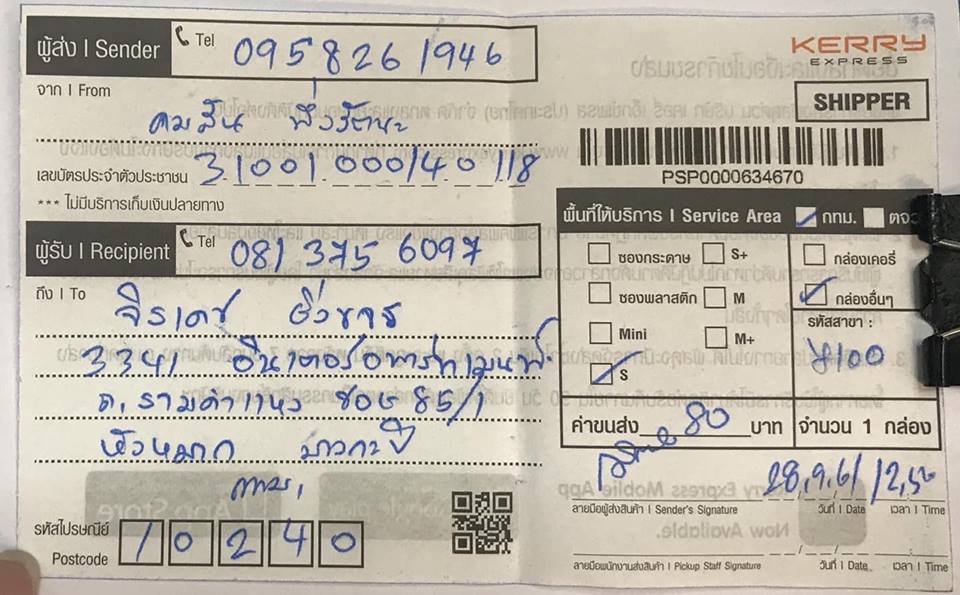 ผู้ส่ง | Sender Tel 095 826 1946
KERRY
EXPRESS
จาก | From
SHIPPER
คมสัน
เลขบัตรประจำตัวประชาชน 3 1001 00014 01 18
PSP0000634670
*** ไม่มีบริการเก็บเงินปลายทาง
พื้นที่ให้บริการ | Service Area กทม. ตจว
ผู้รับ | Recipient Tel 081 375 6097
ซองกระดาษ S+ กล่องเคอรี่
ถึง | To จิรเดช
ซองพลาสติก M กล่องอื่นๆ
Mini M+ รหัสสาขา :
3341 อินเตอร์อพาร์ทเมนท์
S
ถ. รามคำแหง ซอย 85/1
ค่าขนส่ง 80 บาท จำนวน 1 กล่อง
หัวหมาก บางกะปิ
กทม.
28,9,61 12,50
ลายมือผู้ส่งสินค้า | Sender's Signature วันที่ | Date เวลา | Time
รหัสไปรษณีย์
Postcode 10240
ลายมือพนักงานส่งสินค้า | Pickup Staff Signature วันที่ | Date เวลา | Time